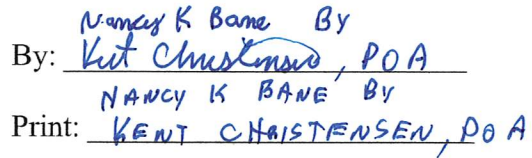 Nancy K Bane By
By: Kent Christensen, POA
NANCY K BANE By
Print: KENT CHRISTENSEN, POA